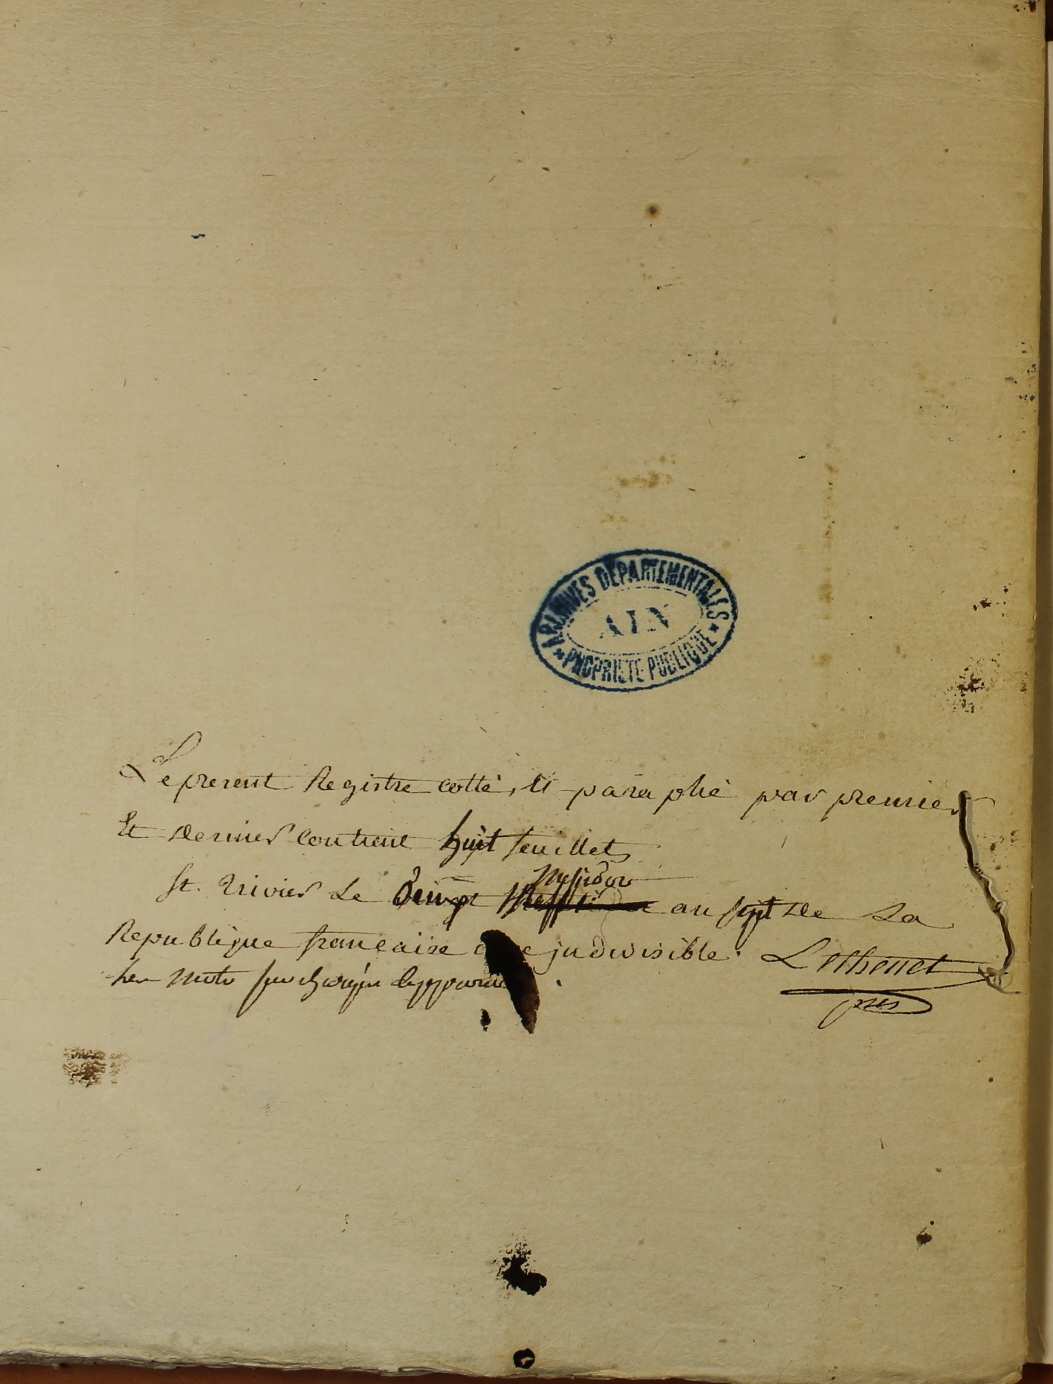 ARCHIVES DÉPARTEMENTALES
AIN
PROPRIÉTÉ PUBLIQUE
Le present Registre cotté, Et paraphé par premier
Et dernier contient huit feuillets
messidor
St. Trivier Le Vingt an sept de La
Republique française indivisible. Lethenet
Les mots